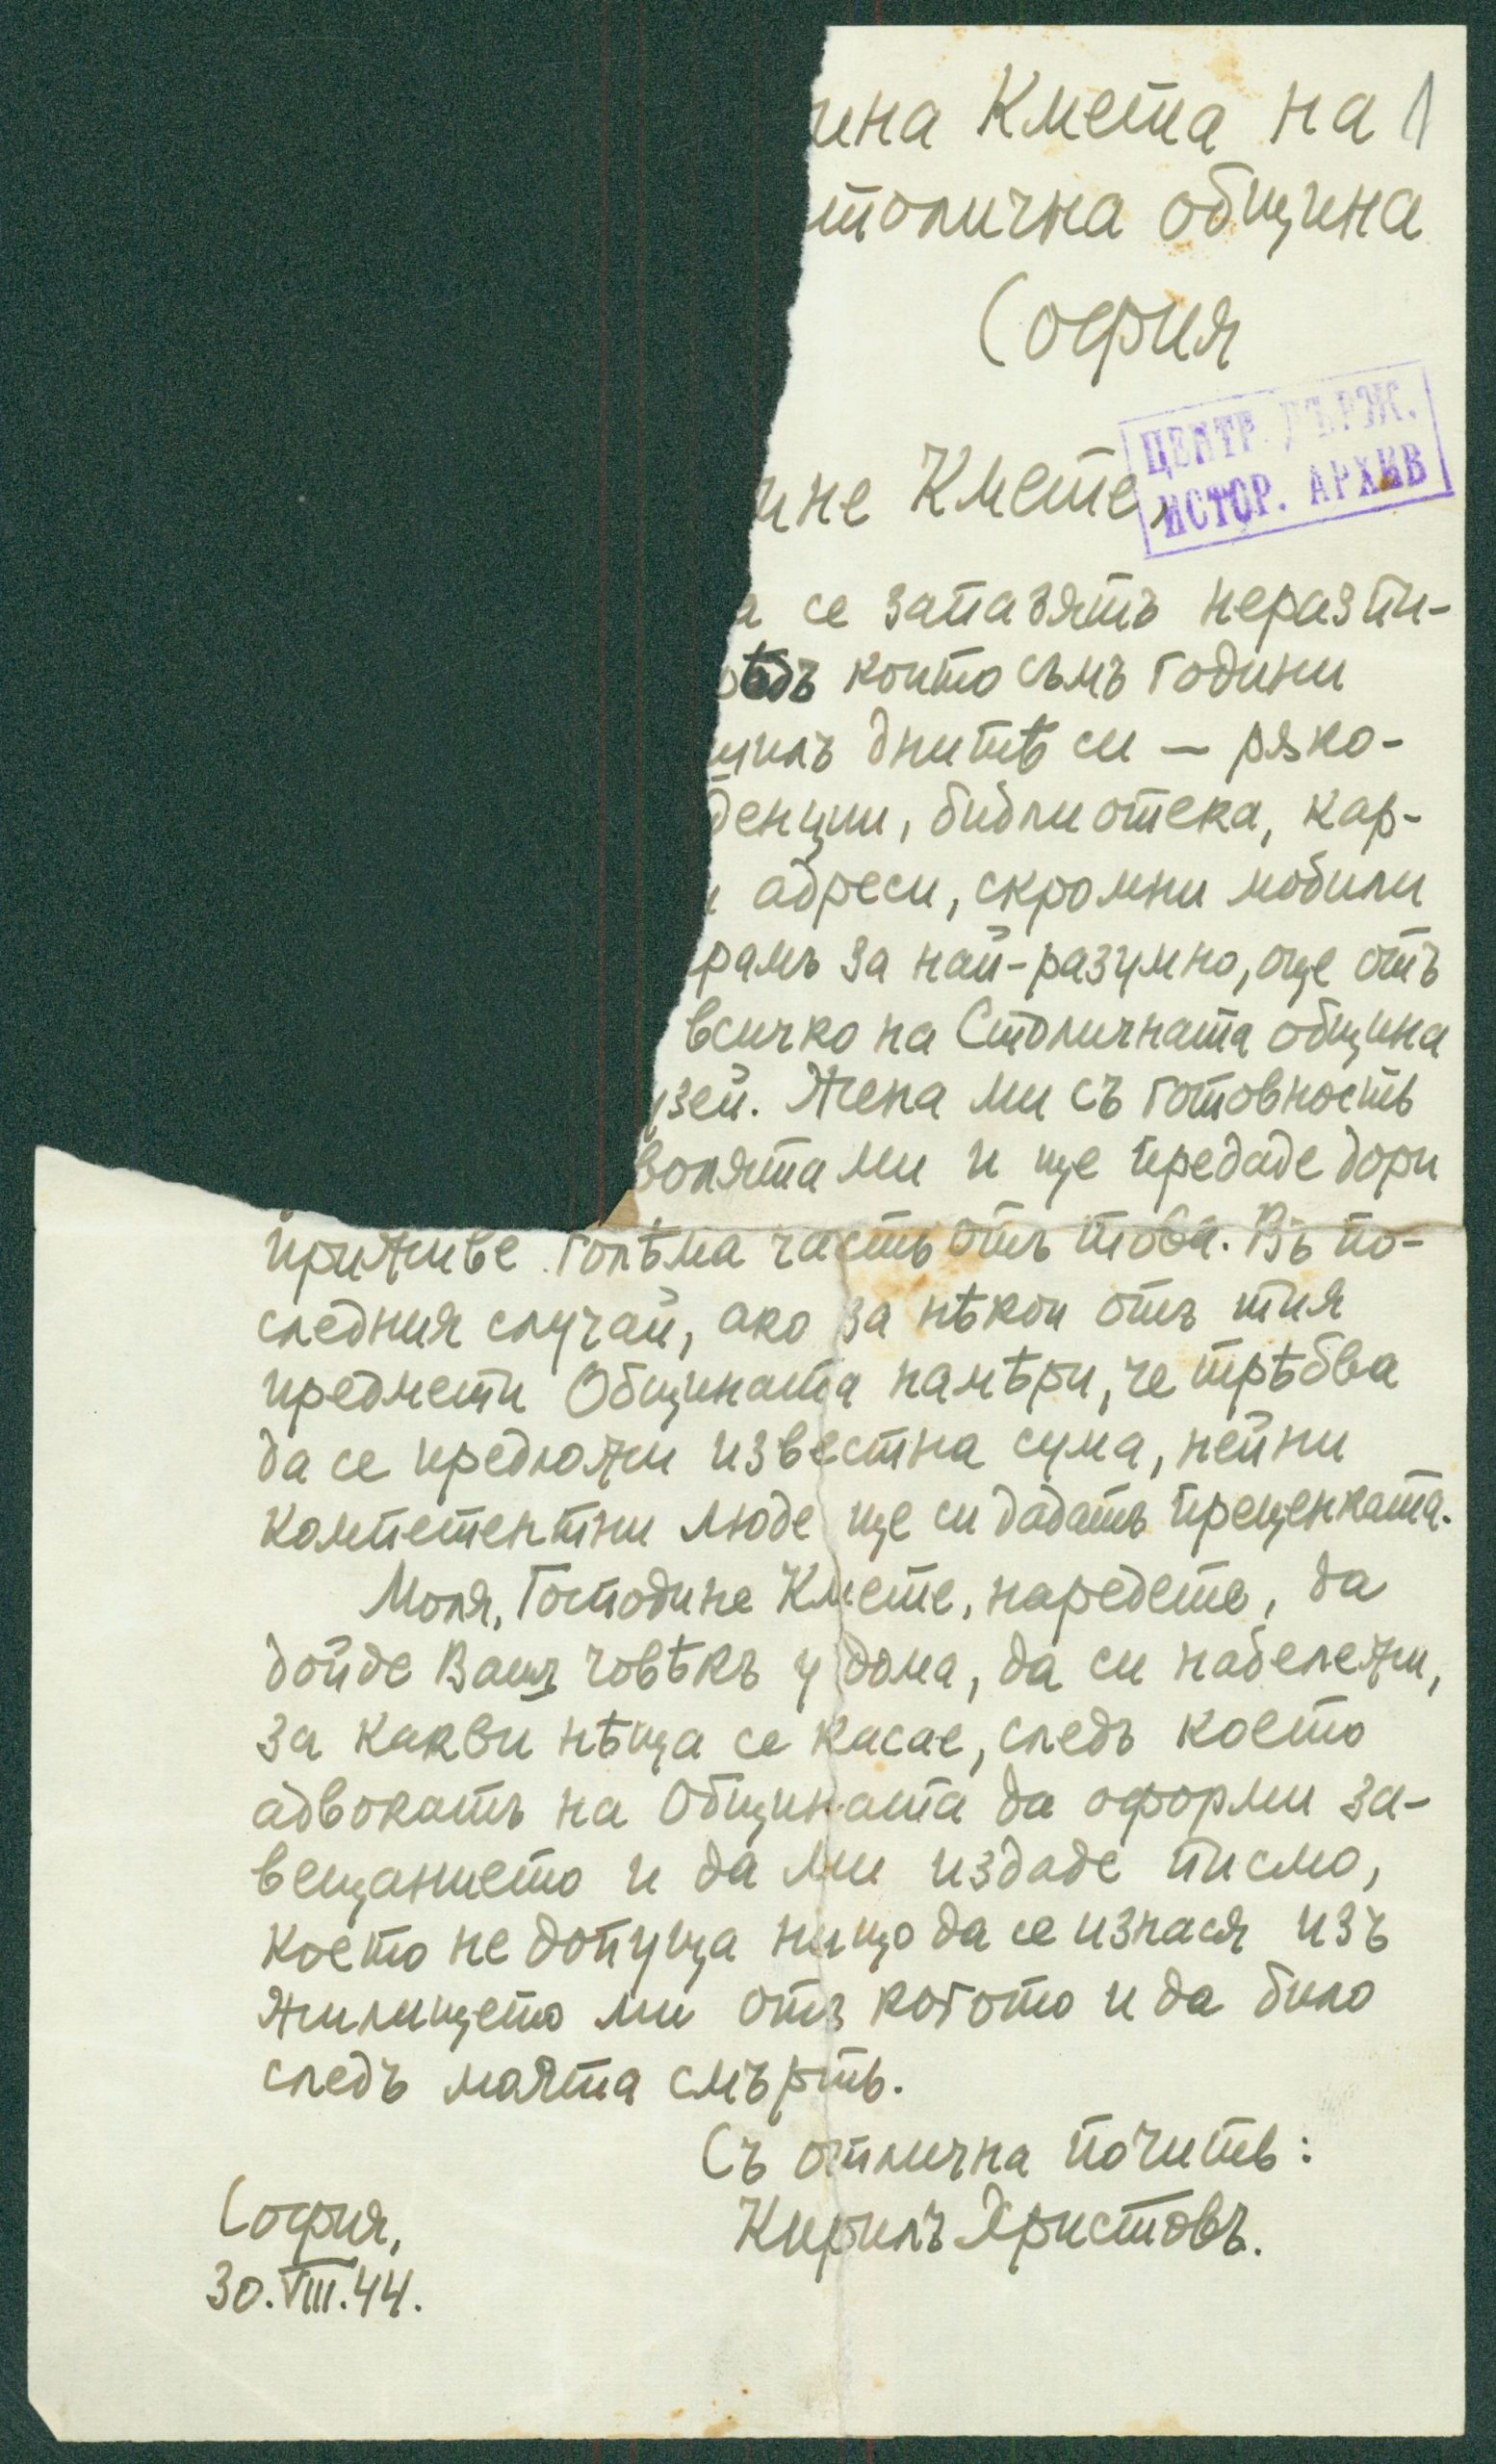 ина Кмета на 1
толична община
София
ЦЕНТР. ДЪРЖ.
ИСТОР. АРХИВ
ине Кмете,
а се запазятъ неразпи-
редъ които съмъ години
илъ днитѣ си — рѫко-
денции, библиотека, кар-
и адреси, скромни мобили
рамъ за най-разумно, още отъ
всичко на Столичната община
узей. Жена ми съ готовность
волята ми и ще предаде дори
приживе голѣма часть отъ това. Въ по-
следния случай, ако за нѣкои отъ тия
предмети Общината намѣри, че трѣбва
да се предложи известна сума, нейни
компетентни люде ще си дадатъ преценката.
Моля, Господине Кмете, наредете, да
дойде Вашъ човѣкъ у дома, да си набележи,
за какви нѣща се касае, следъ което
адвокатъ на Общината да оформи за-
вещанието и да ми издаде писмо,
което не допуща нищо да се изнася изъ
жилището ми отъ когото и да било
следъ моята смърть.
Съ отлична почить:
Кирилъ Христовъ.
София,
30.VIII.44.